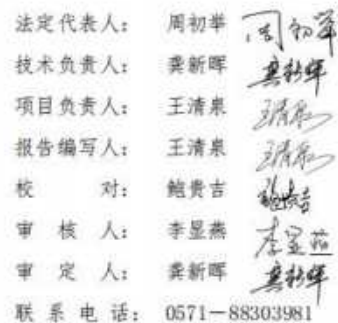 法定代表人： 周初举 周初举
技术负责人： 龚新晖 龚新晖
项目负责人： 王清泉 王清泉
报告编写人： 王清泉 王清泉
校 对： 鲍贵吉 鲍贵吉
审 核 人： 李显燕 李显燕
审 定 人： 龚新晖 龚新晖
联 系 电 话： 0571－88303981